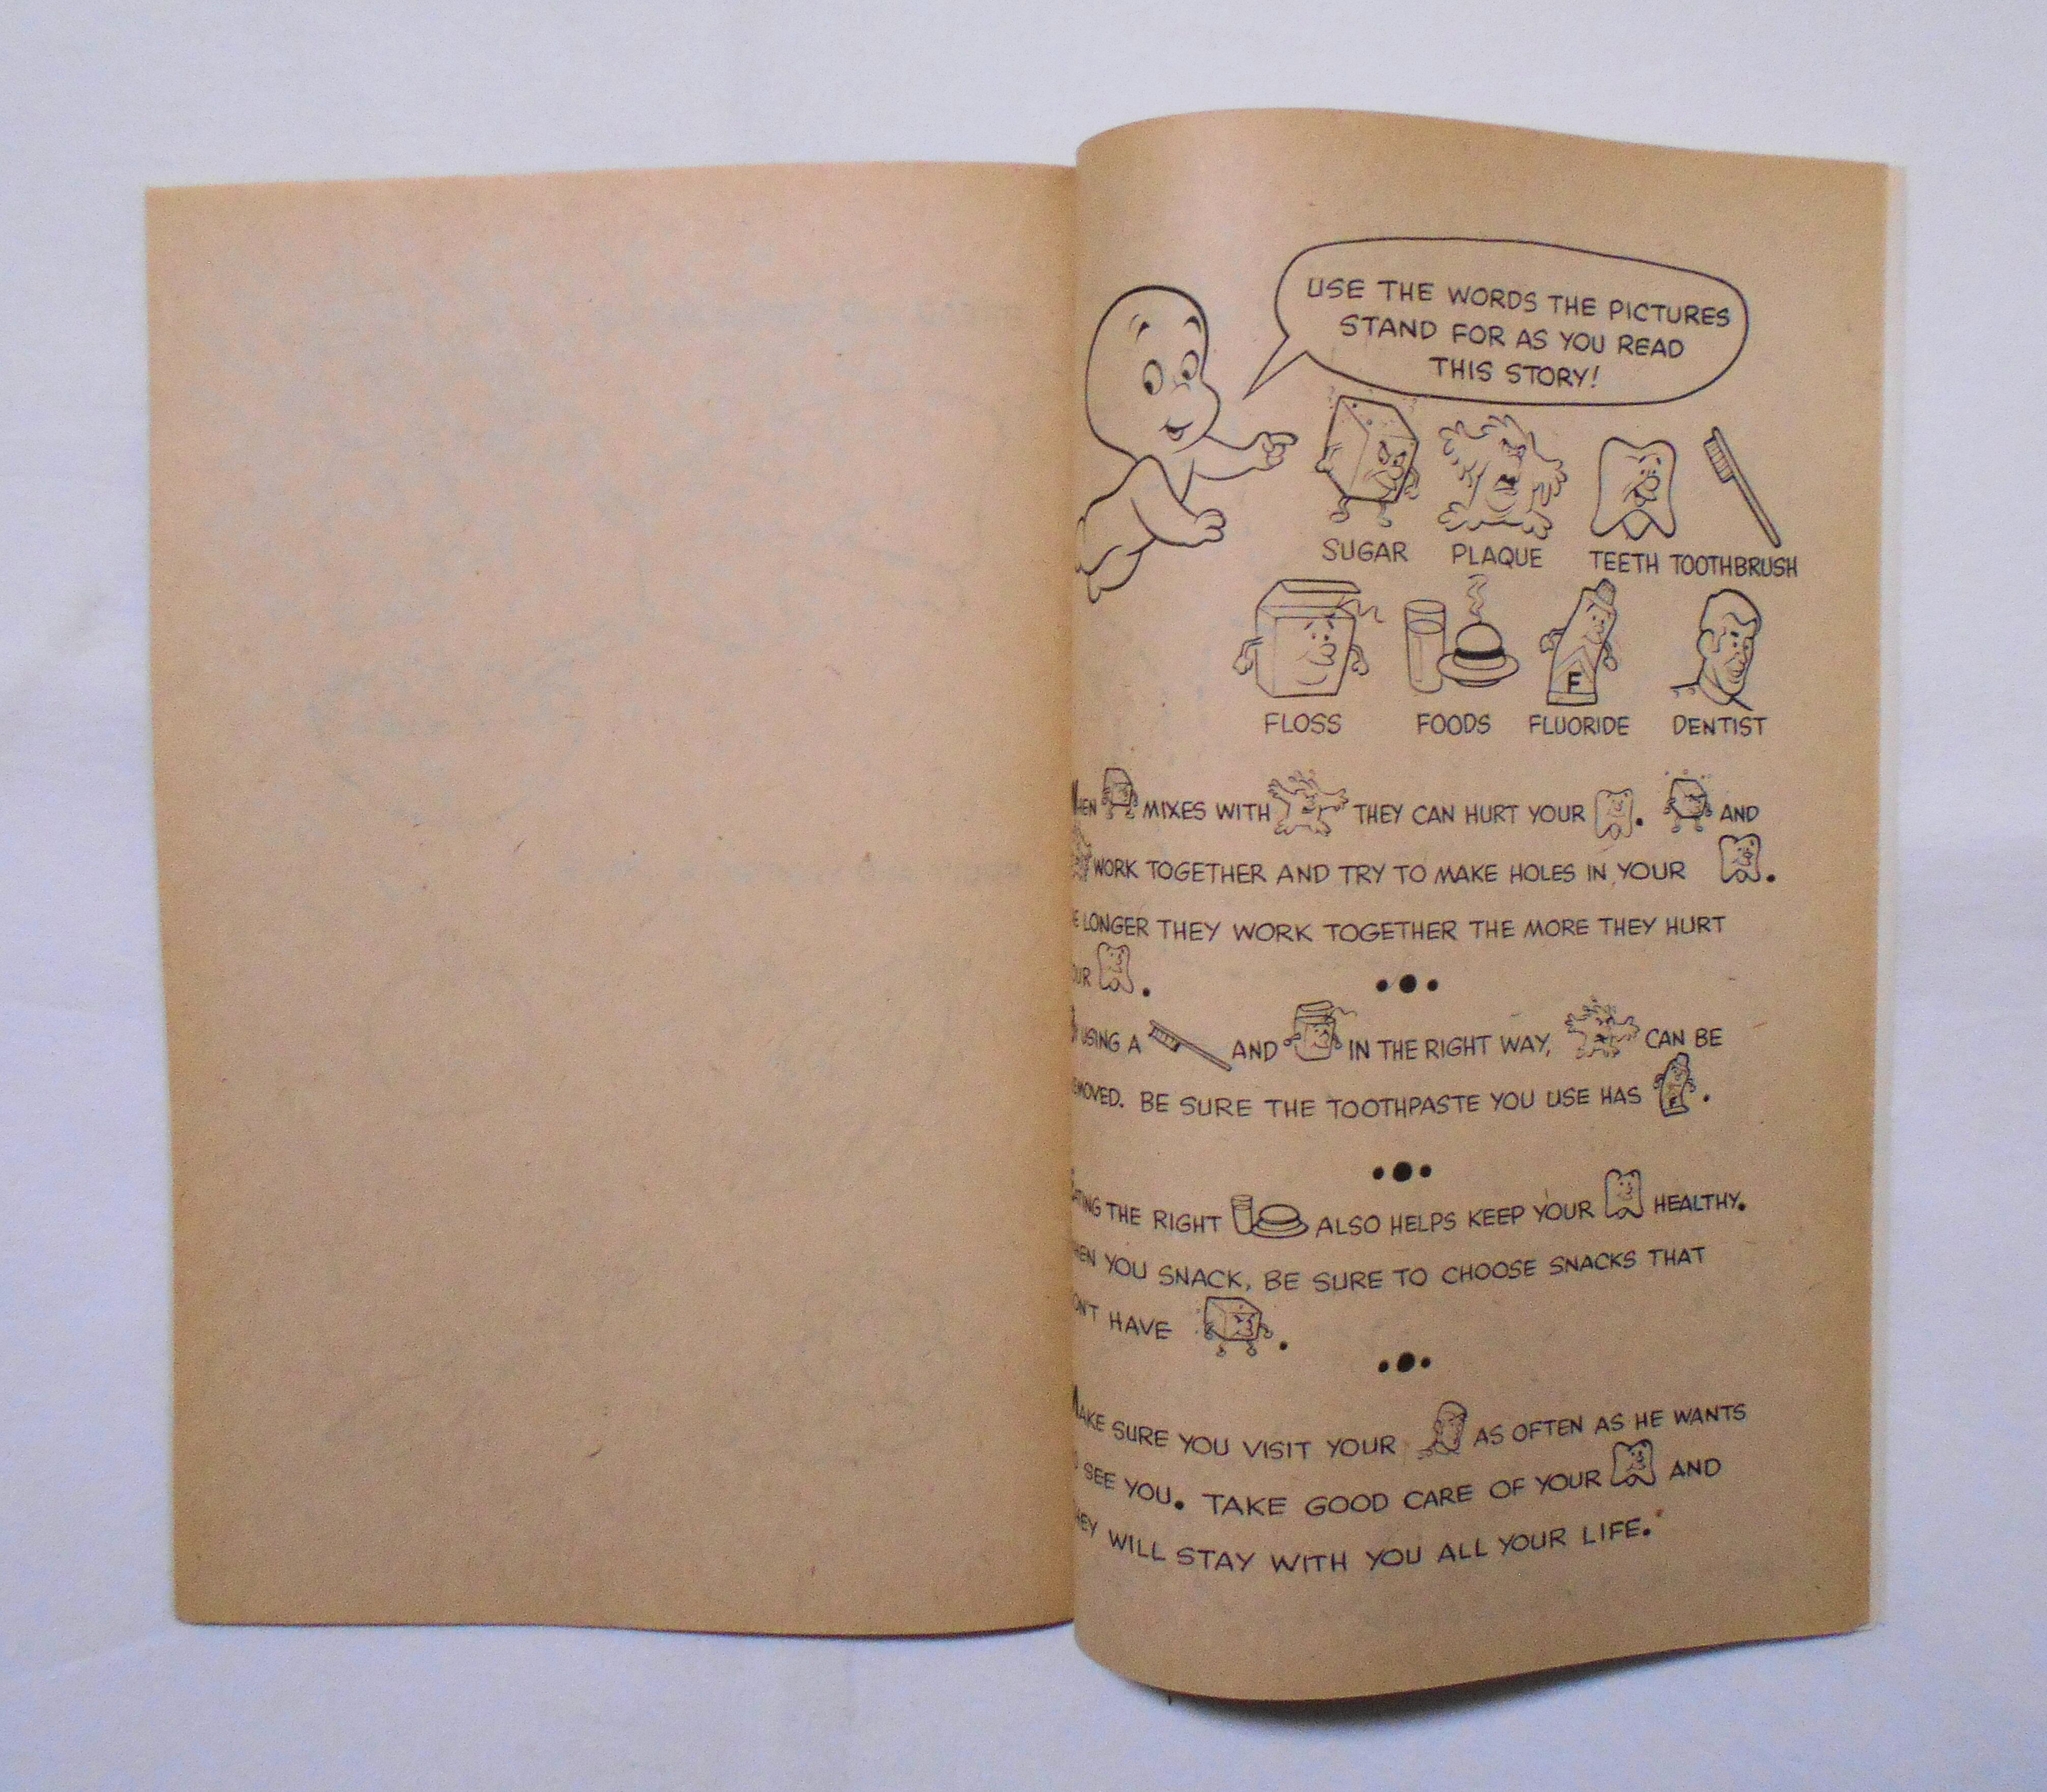 USE THE WORDS THE PICTURES
STAND FOR AS YOU READ
THIS STORY!
SUGAR PLAQUE TEETH TOOTHBRUSH
FLOSS FOODS FLUORIDE DENTIST
F
WHEN MIXES WITH THEY CAN HURT YOUR . AND
WORK TOGETHER AND TRY TO MAKE HOLES IN YOUR .
LONGER THEY WORK TOGETHER THE MORE THEY HURT
.
USING A AND IN THE RIGHT WAY, CAN BE
BE SURE THE TOOTHPASTE YOU USE HAS .
THE RIGHT ALSO HELPS KEEP YOUR HEALTHY.
YOU SNACK, BE SURE TO CHOOSE SNACKS THAT
HAVE .
MAKE SURE YOU VISIT YOUR AS OFTEN AS HE WANTS
SEE YOU. TAKE GOOD CARE OF YOUR AND
WILL STAY WITH YOU ALL YOUR LIFE.